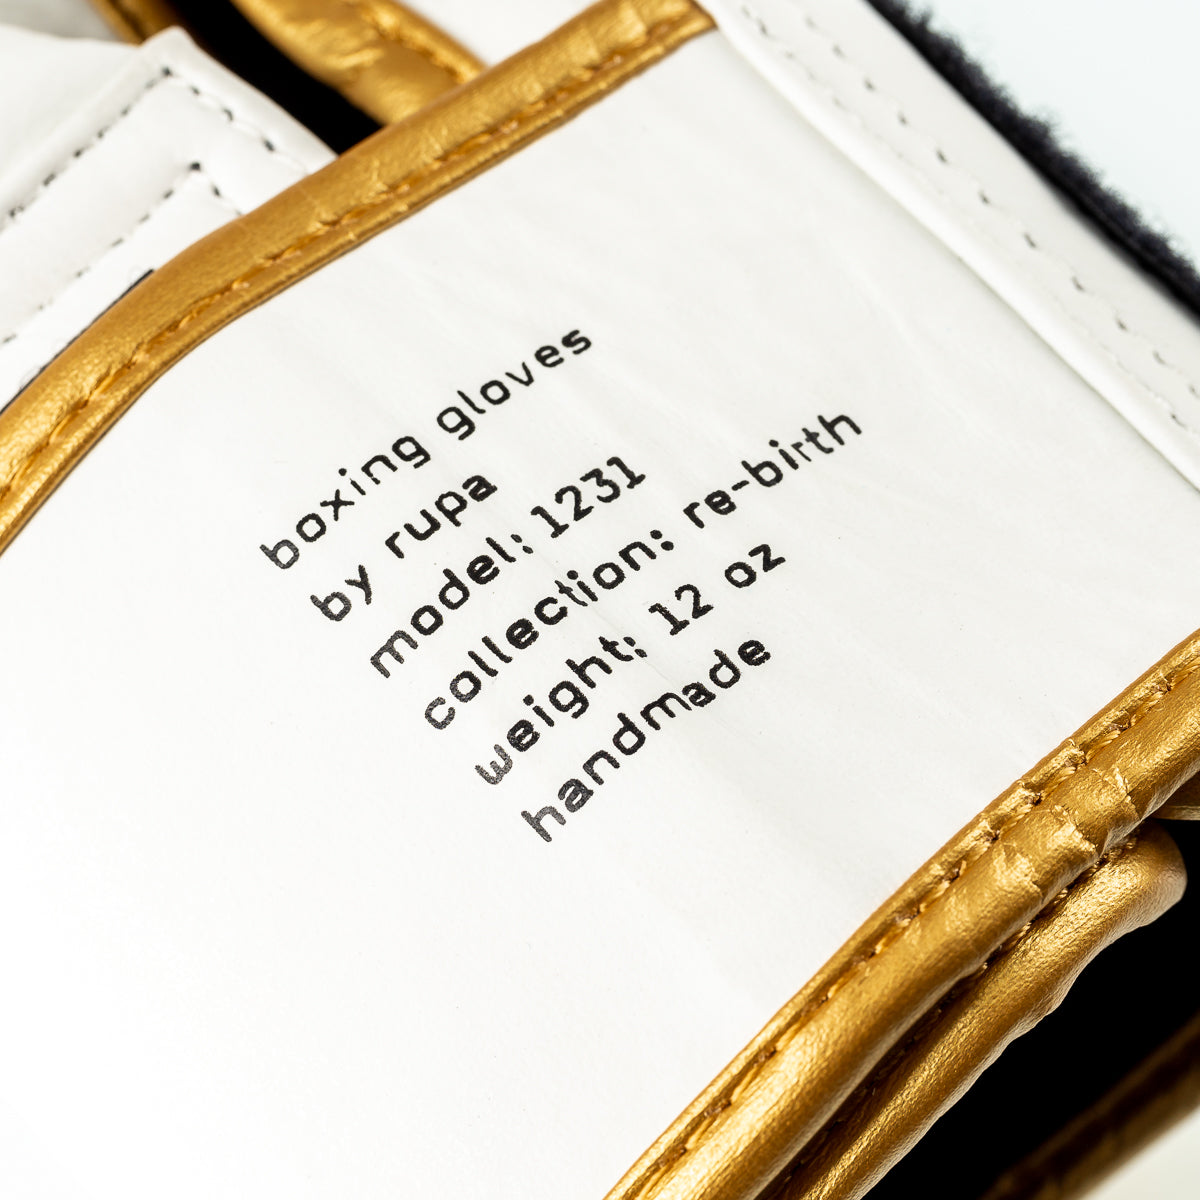 boxing gloves
by rupa
model: 1231
collection: re-birth
weight: 12 oz
handmade